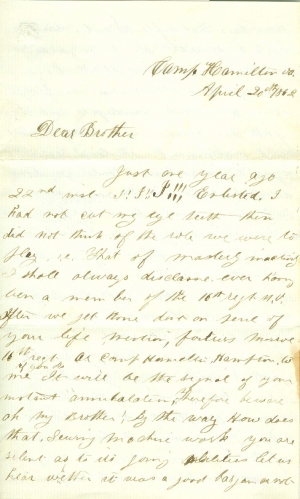 Camp Hamilton Va.
April 20th 1862
Dear Brother
Just one year ago
22nd inst I! I! I!!! Enlisted. I
had not cut my eye teeth then
did not think of the role we were to
play. i.e. That of masterly
I shall always disclaim ever having
been a member of the 16th regt
After we get home dare on peril of
your life mention, fortress Monroe
16th regt, or Camp Hamilton Hampton, to
me If you do It will be the signal of your
instant annihalation, Therefore beware
oh my Brother! By the way How does
that Sewing Machine work you are
silent as to its going let us
hear wether it was a good bargain or not